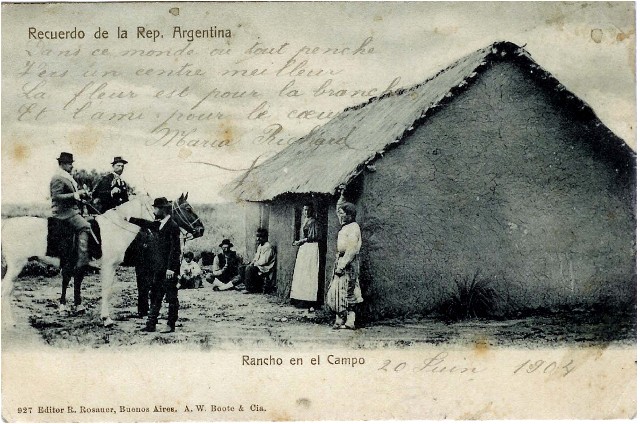 Recuerdo de la Rep. Argentina
Dans ce monde où tout penche
Vers un centre meilleur
La fleur est pour la branche
Et l'ami pour le cœur
Maria Richard
Rancho en el Campo
20 Juin 1904
927 Editor R. Rosauer, Buenos Aires. A. W. Boote & Cia.